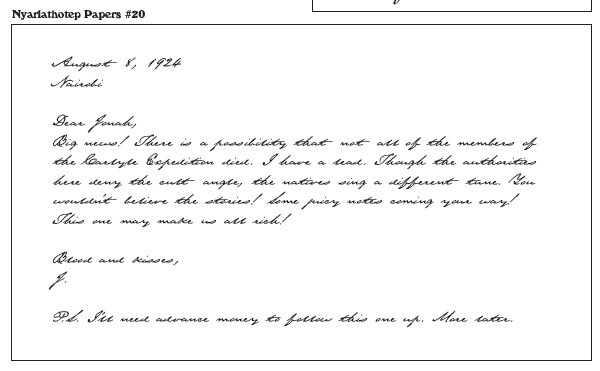 Nyarlathotep Papers #20
August 8, 1924
Nairobi
Dear Jonah,
Big news! There is a possibility that not all of the members of
the Carlyle Expedition died. I have a lead. Though the authorities
here deny the cult angle, the natives sing a different tune. You
wouldn't believe the stories! Some juicy notes coming your way!
This one may make us all rich!
Blood and kisses,
J.
P.S. I'll need advance money to follow this one up. More later.